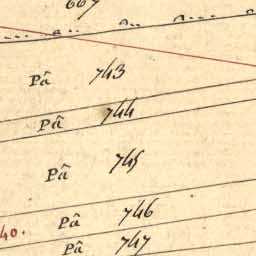 667
Pâ 743
Pâ 744
Pâ 745
Pâ 746
40.
Pâ 747